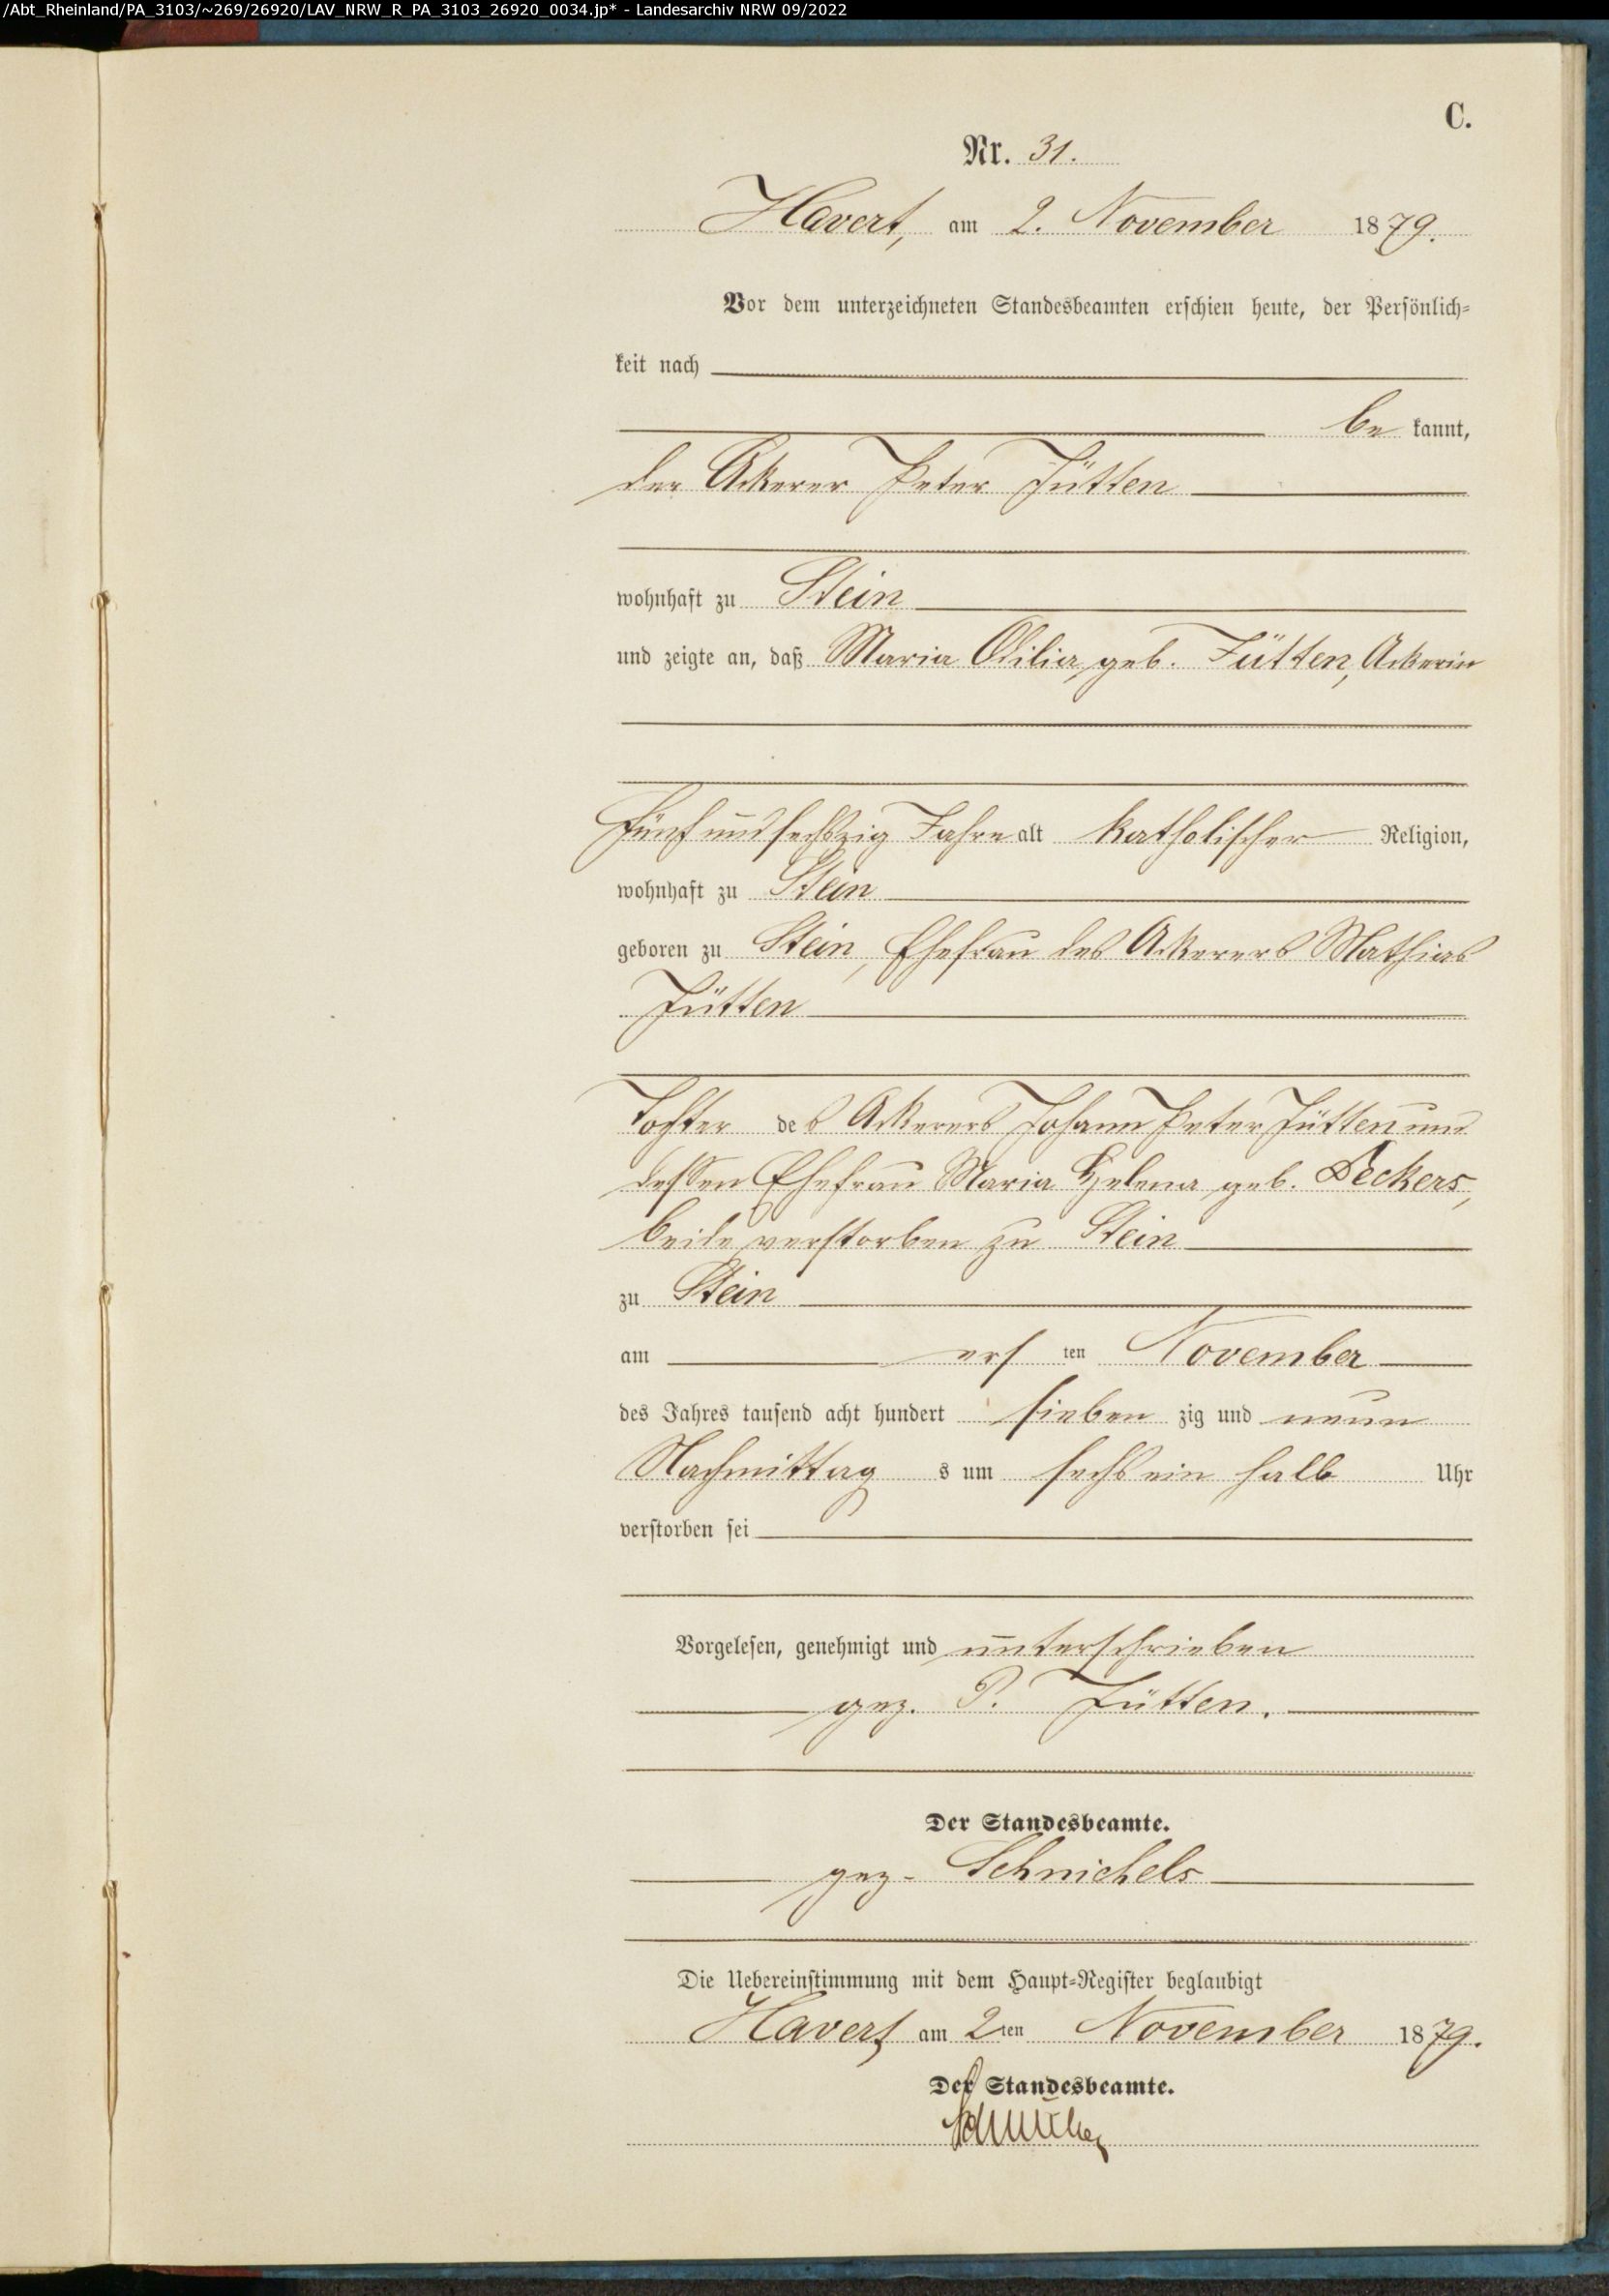 /Abt_Rheinland/PA_3103/~269/26920/LAV_NRW_R_PA_3103_26920_0034.jp* - Landesarchiv NRW 09/2022
C.
Nr. 31.
Havert, am 2. November 1879.
Vor dem unterzeichneten Standesbeamten erschien heute, der Persönlich-
keit nach
bekannt,
der Ackerer Peter Jütten
wohnhaft zu Stein
und zeigte an, daß Maria Odilia, geb. Jütten, Ackerin
fünf und sechszig Jahre alt katholischer Religion,
wohnhaft zu Stein
geboren zu Stein, Ehefrau des Ackerers Mathias
Jütten
Tochter des Ackerers Johann Peter Jütten und
dessen Ehefrau Maria Helena geb. Deckers,
beide verstorben zu Stein
zu Stein
am ersten November
des Jahres tausend acht hundert siebenzig und neun
Nachmittags um sechs ein halb Uhr
verstorben sei
Vorgelesen, genehmigt und unterschrieben
gez. P. Jütten.
Der Standesbeamte.
gez. Schnichels
Die Uebereinstimmung mit dem Haupt-Register beglaubigt
Havert am 2ten November 1879.
Der Standesbeamte.
Schnichels